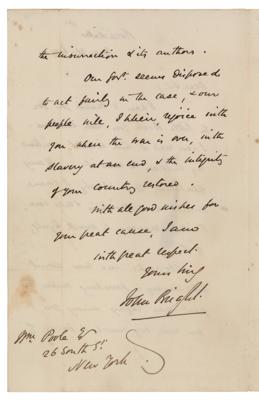 the insurrection & its authors.
Our govt. seems disposed
to act fairly in the case, & our
people will, I believe, rejoice with
you when the war is over, with
slavery at an end, & the integrity
of your country restored.
With all good wishes for
your great cause, I am
with great respect.
Yours truly
John Bright.
Wm Poole
26 South St.
New York